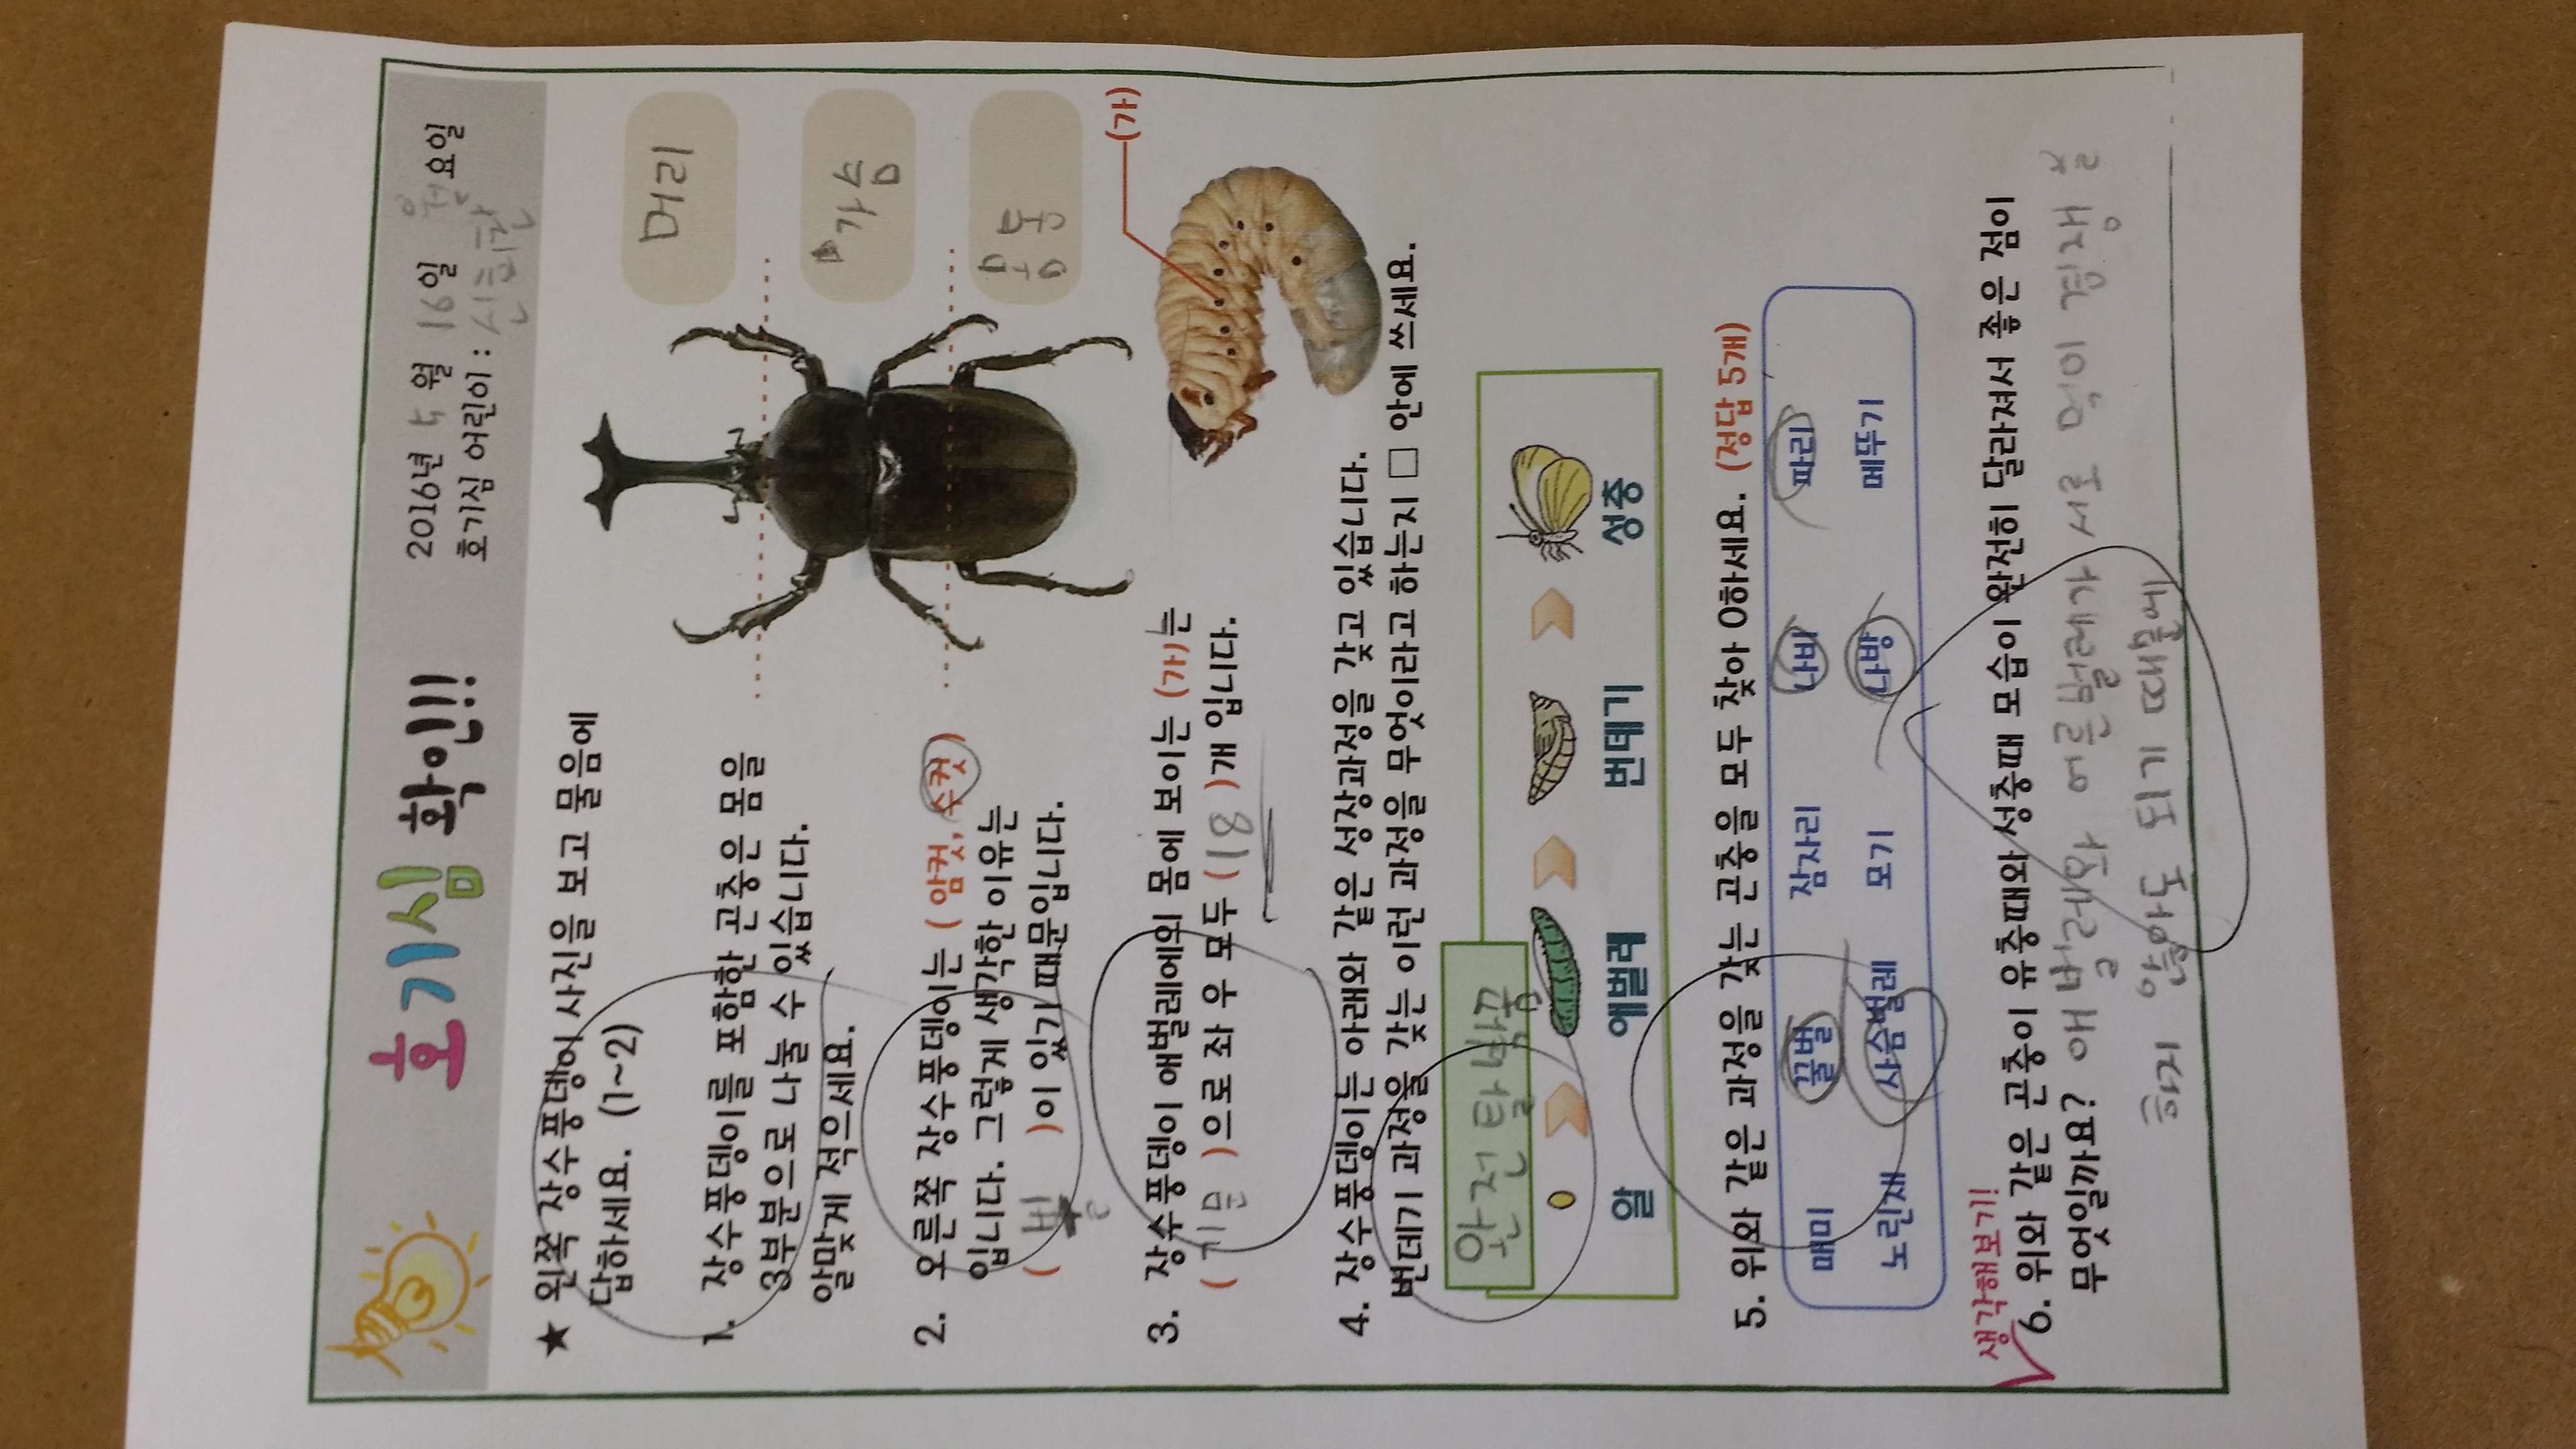 호기심 확인!!
2016년 4월 16일 요일
호기심 어린이 :
★ 왼쪽 장수풍뎅이 사진을 보고 물음에
답하세요. (1~2)
1. 장수풍뎅이를 포함한 곤충은 몸을
3부분으로 나눌 수 있습니다.
알맞게 적으세요.
머리
가슴
2. 오른쪽 장수풍뎅이는 ( 암컷, 수컷 )
입니다. 그렇게 생각한 이유는
( 뿔 )이 있기 때문입니다.
(가)
3. 장수풍뎅이 애벌레에의 몸에 보이는 (가)는
( 기문 )으로 좌 우 모두 ( 18 )개 입니다.
4. 장수풍뎅이는 아래와 같은 성장과정을 갖고 있습니다.
번데기 과정을 갖는 이런 과정을 무엇이라고 하는지 □ 안에 쓰세요.
알 애벌레 번데기 성충
5. 위와 같은 과정을 갖는 곤충을 모두 찾아 O하세요. (정답 5개)
매미 꿀벌 잠자리 나비 파리
노린재 사슴벌레 모기 나방 메뚜기
생각해보기!
6. 위와 같은 곤충이 유충때와 성충때 모습이 완전히 달라져서 좋은 점이
무엇일까요? 애벌레와 어른벌레가 서로 먹이 경쟁을
안해도 되기 때문에